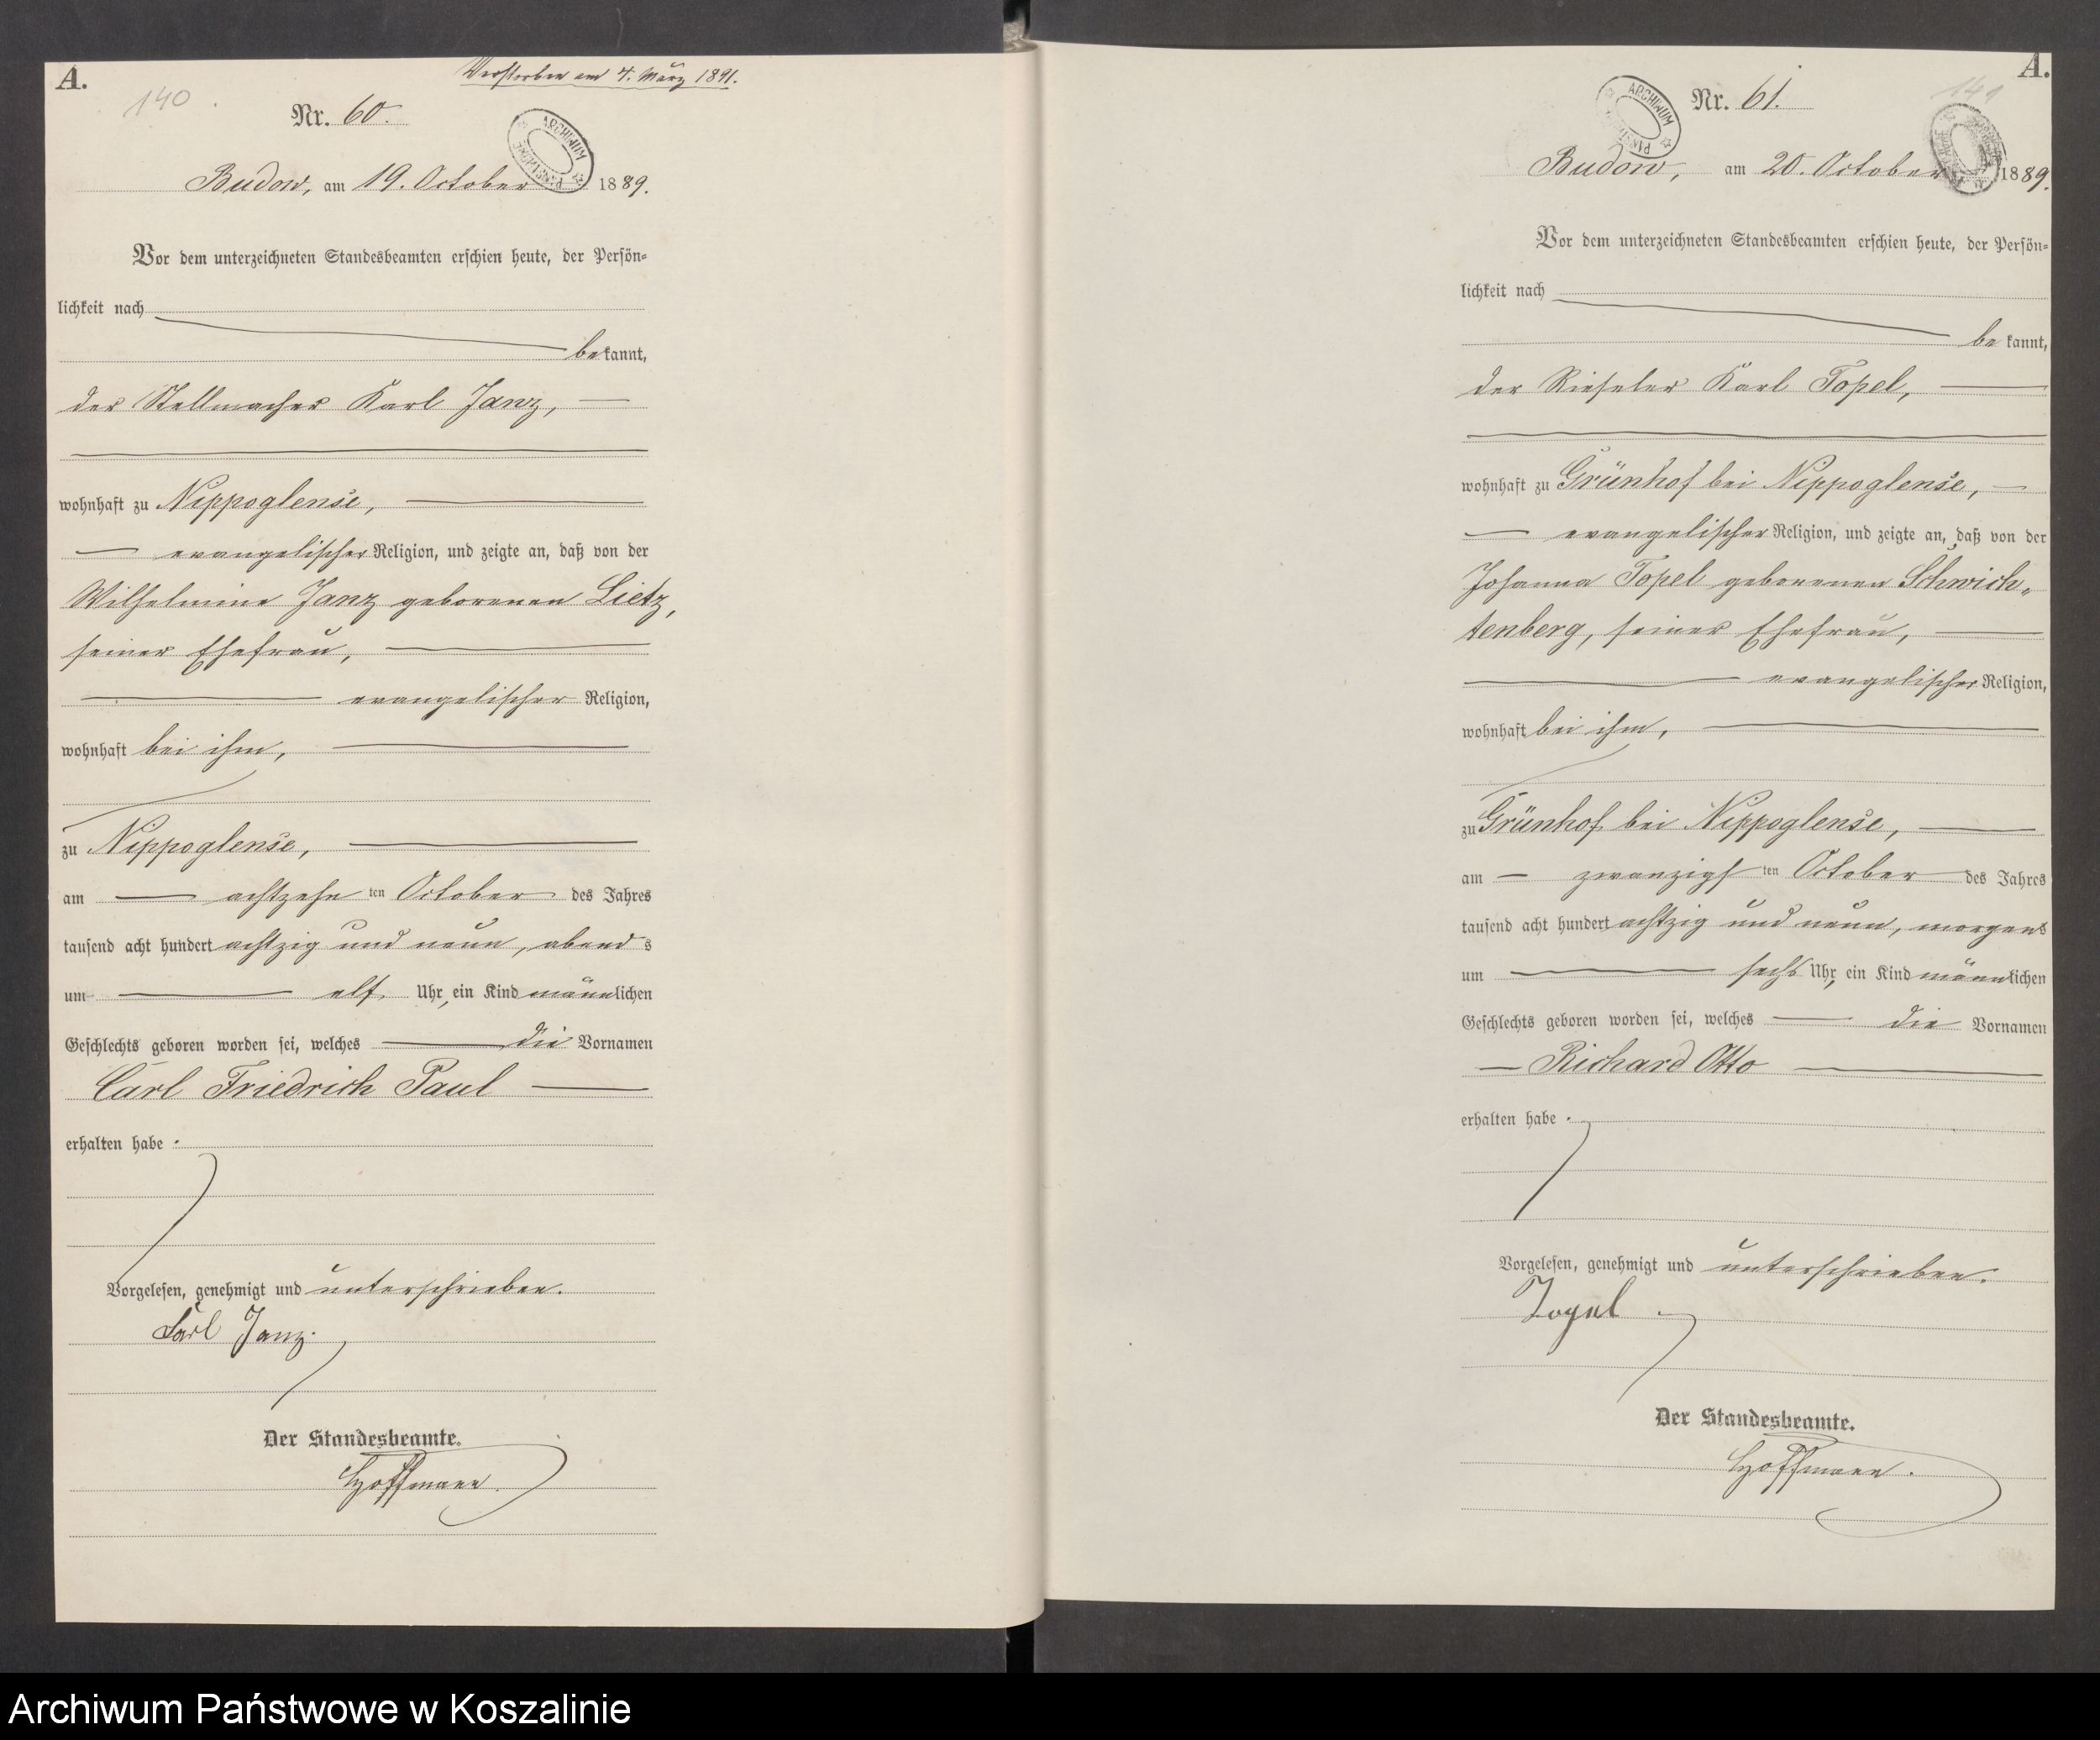 A.
140.
Verstorben am 4. März 1891.
Nr. 60.
ARCHIWUM
Budow, am 19. October 1889.
Vor dem unterzeichneten Standesbeamten erschien heute, der Persön-
lichkeit nach
bekannt,
der Stellmacher Karl Janz,
wohnhaft zu Nippoglense,
evangelischer Religion, und zeigte an, daß von der
Wilhelmine Janz geborenen Lietz,
seiner Ehefrau,
evangelischer Religion,
wohnhaft bei ihm,
zu Nippoglense,
am achtzehnten October des Jahres
tausend acht hundert achtzig und neun, abends
um elf Uhr, ein Kind männlichen
Geschlechts geboren worden sei, welches die Vornamen
Carl Friedrich Paul
erhalten habe.
Vorgelesen, genehmigt und unterschrieben.
Carl Janz.
Der Standesbeamte.
Hoffmann.
A.
141
Nr. 61.
ARCHIWUM
Budow, am 20. October 1889.
Vor dem unterzeichneten Standesbeamten erschien heute, der Persön-
lichkeit nach
bekannt,
der Rieseler Karl Topel,
wohnhaft zu Grünhof bei Nippoglense,
evangelischer Religion, und zeigte an, daß von der
Johanna Topel geborenen Schwich-
tenberg, seiner Ehefrau,
evangelischer Religion,
wohnhaft bei ihm,
zu Grünhof bei Nippoglense,
am zwanzigsten October des Jahres
tausend acht hundert achtzig und neun, morgens
um sechs Uhr, ein Kind männlichen
Geschlechts geboren worden sei, welches die Vornamen
Richard Otto
erhalten habe.
Vorgelesen, genehmigt und unterschrieben.
Topel
Der Standesbeamte.
Hoffmann.
Archiwum Państwowe w Koszalinie